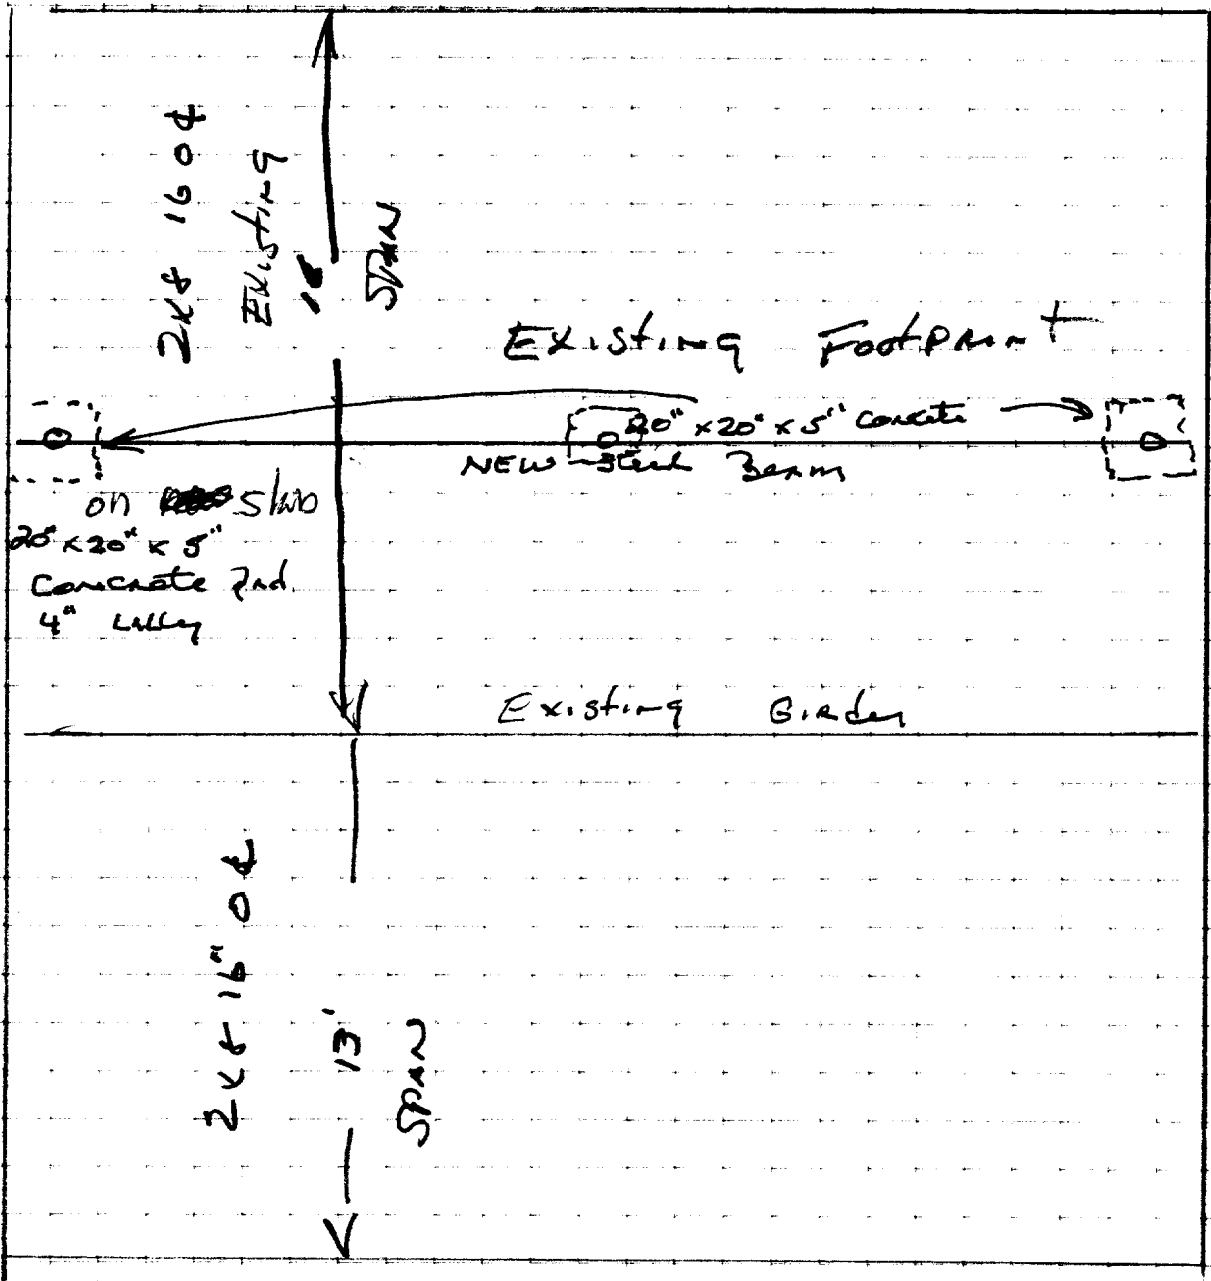 2x8 16 O¢
Existing
SPAN
Existing Footprint
20" x 20" x 5" Concrete
NEW Steel Beam
on slab
20" x 20" x 5"
Concrete Pad
4" Lally
Existing Girder
2x8 16" O¢
13'
SPAN